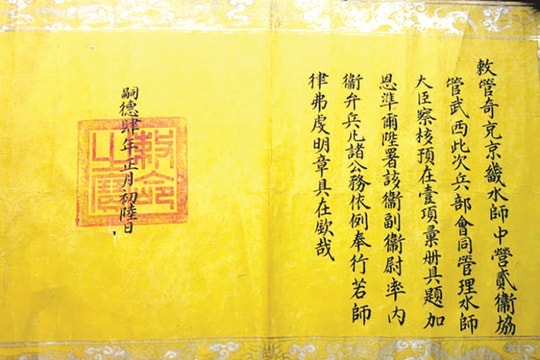 敕管奇克京畿水師中營貳衞協
管武西此次兵部會同管理水師
大臣察核預在壹項彙册具題加
恩準爾陞署該衞副衞尉率內
衞弁兵凡諸公務依例奉行若師
律弗虔明章具在欽哉
嗣德肆年正月初陸日
敕命之寶